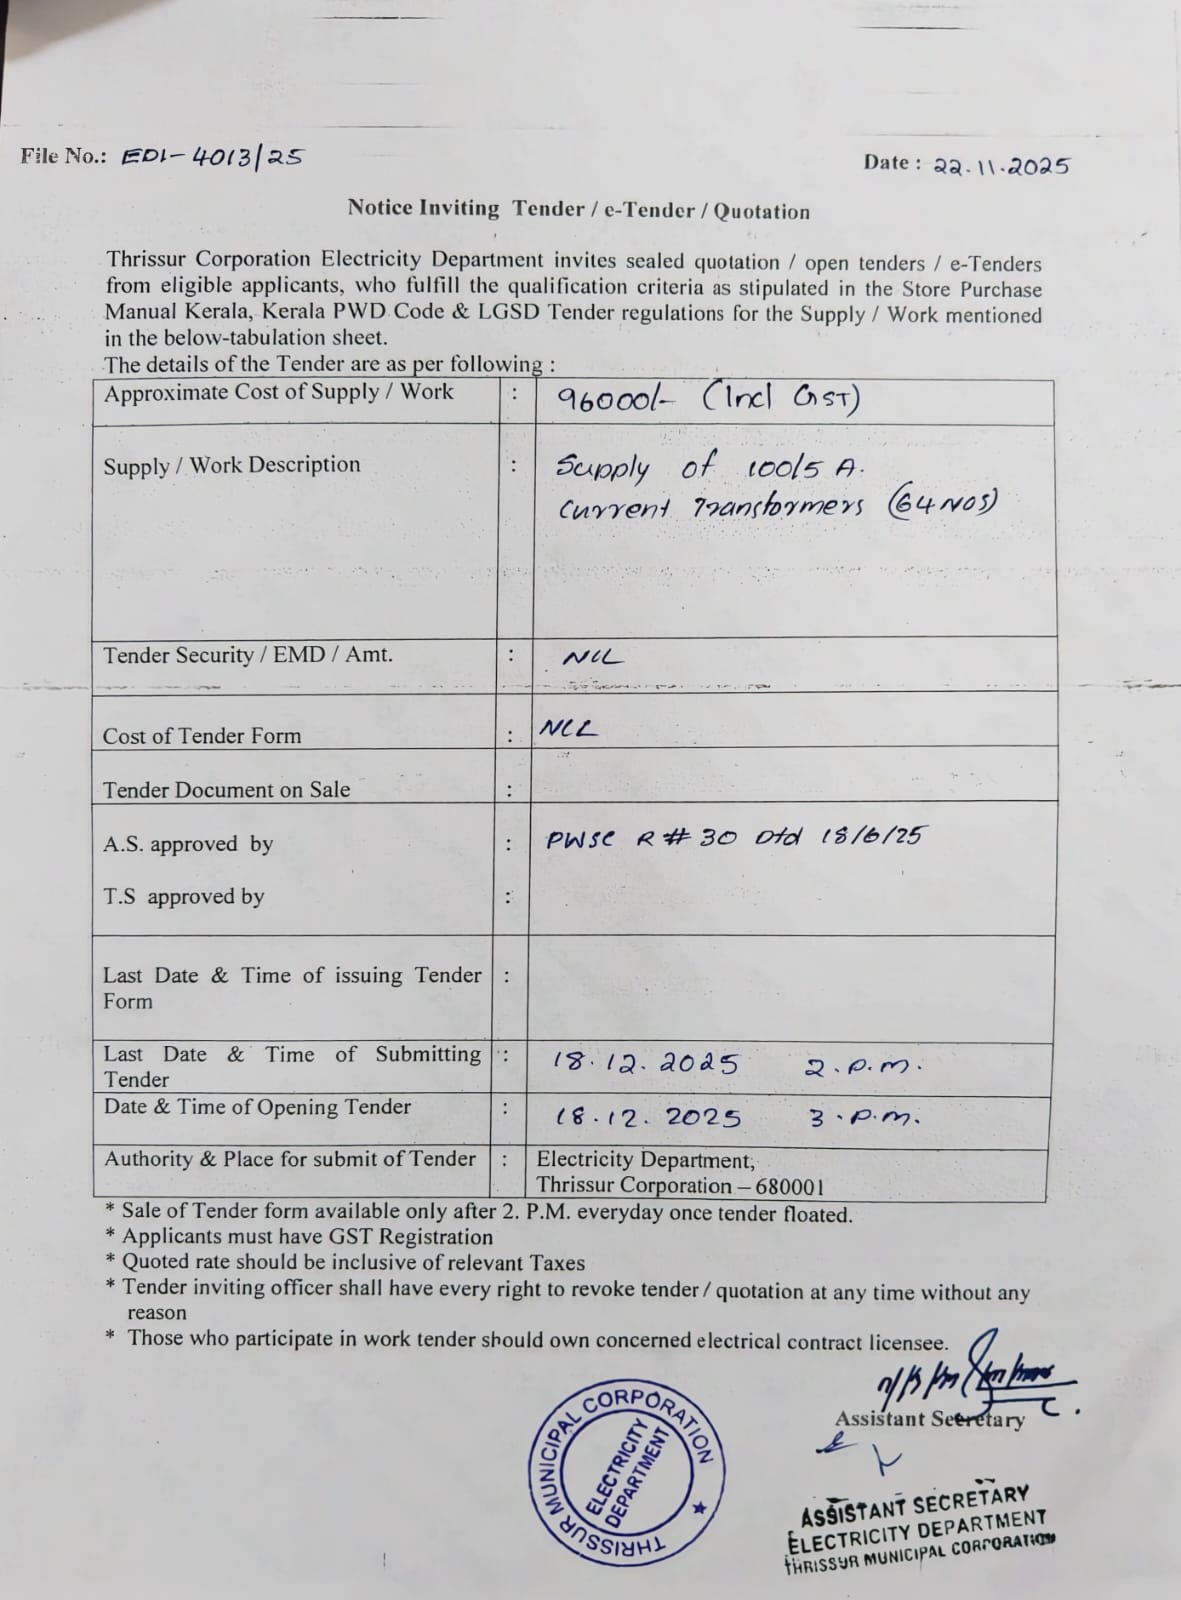 File No.: EDI-4013/25
Date : 22.11.2025
Notice Inviting Tender / e-Tender / Quotation
Thrissur Corporation Electricity Department invites sealed quotation / open tenders / e-Tenders
from eligible applicants, who fulfill the qualification criteria as stipulated in the Store Purchase
Manual Kerala, Kerala PWD Code & LGSD Tender regulations for the Supply / Work mentioned
in the below-tabulation sheet.
The details of the Tender are as per following :
Approximate Cost of Supply / Work : 96000/- (Incl GST)
Supply / Work Description : Supply of 100/5 A.
Current Transformers (64 NOS)
Tender Security / EMD / Amt. : NIL
Cost of Tender Form : NIL
Tender Document on Sale :
A.S. approved by : PWSC R # 30 Dtd 18/6/25
T.S approved by :
Last Date & Time of issuing Tender :
Form
Last Date & Time of Submitting : 18.12.2025 2.P.m.
Tender
Date & Time of Opening Tender : 18.12.2025 3.P.m.
Authority & Place for submit of Tender : Electricity Department,
Thrissur Corporation – 680001
* Sale of Tender form available only after 2. P.M. everyday once tender floated.
* Applicants must have GST Registration
* Quoted rate should be inclusive of relevant Taxes
* Tender inviting officer shall have every right to revoke tender / quotation at any time without any
reason
* Those who participate in work tender should own concerned electrical contract licensee.
Assistant Secretary
THRISSUR MUNICIPAL CORPORATION
ELECTRICITY
DEPARTMENT
ASSISTANT SECRETARY
ELECTRICITY DEPARTMENT
THRISSUR MUNICIPAL CORPORATION